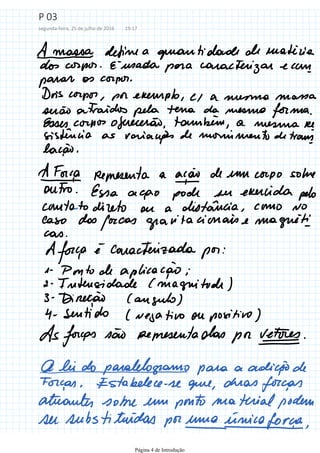 P 03
segunda-feira, 25 de julho de 2016    19:17
A massa define a quantidade de matéria
dos corpos. É usada para caracterizar e com
parar os corpos.
Dois corpos, por exemplo, c/ a mesma massa
serão atraídos pela terra da mesma forma.
Esses corpos oferecerão, também, a mesma re
sistência as variações de movimento de trans
lação.
A Força representa a ação de um corpo sobre
outro. Essa acção pode ser exercida pelo
contato direto ou a distância, como no
caso das forças gravitacionais e magnéti
cas.
A força é caracterizada por:
1- Ponto de aplicação;
2- Intensidade (magnitude)
3- Direção (angulo)
4- Sentido (negativo ou positivo)
As forças são representadas por vetores.
A lei do paralelogramo para a adição de
Forças. Estabelece-se que, duas forças
atuantes sobre um ponto material podem
ser substituídas por uma única força,
Página 4 de Introdução